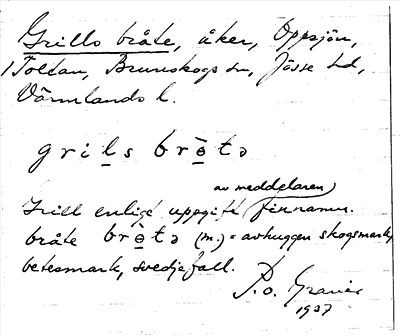 Grills bråte, åker, Oppsjön,
Toltan, Brunskogs sn, Jösse hd,
Värmlands l.
grils brò̱tə
av meddelaren
Grill enligt uppgift finnamn.
bråte brò̱tə (m.) = avhuggen skogsmark,
betesmark, svedjefall.
P.O. Granér
1937